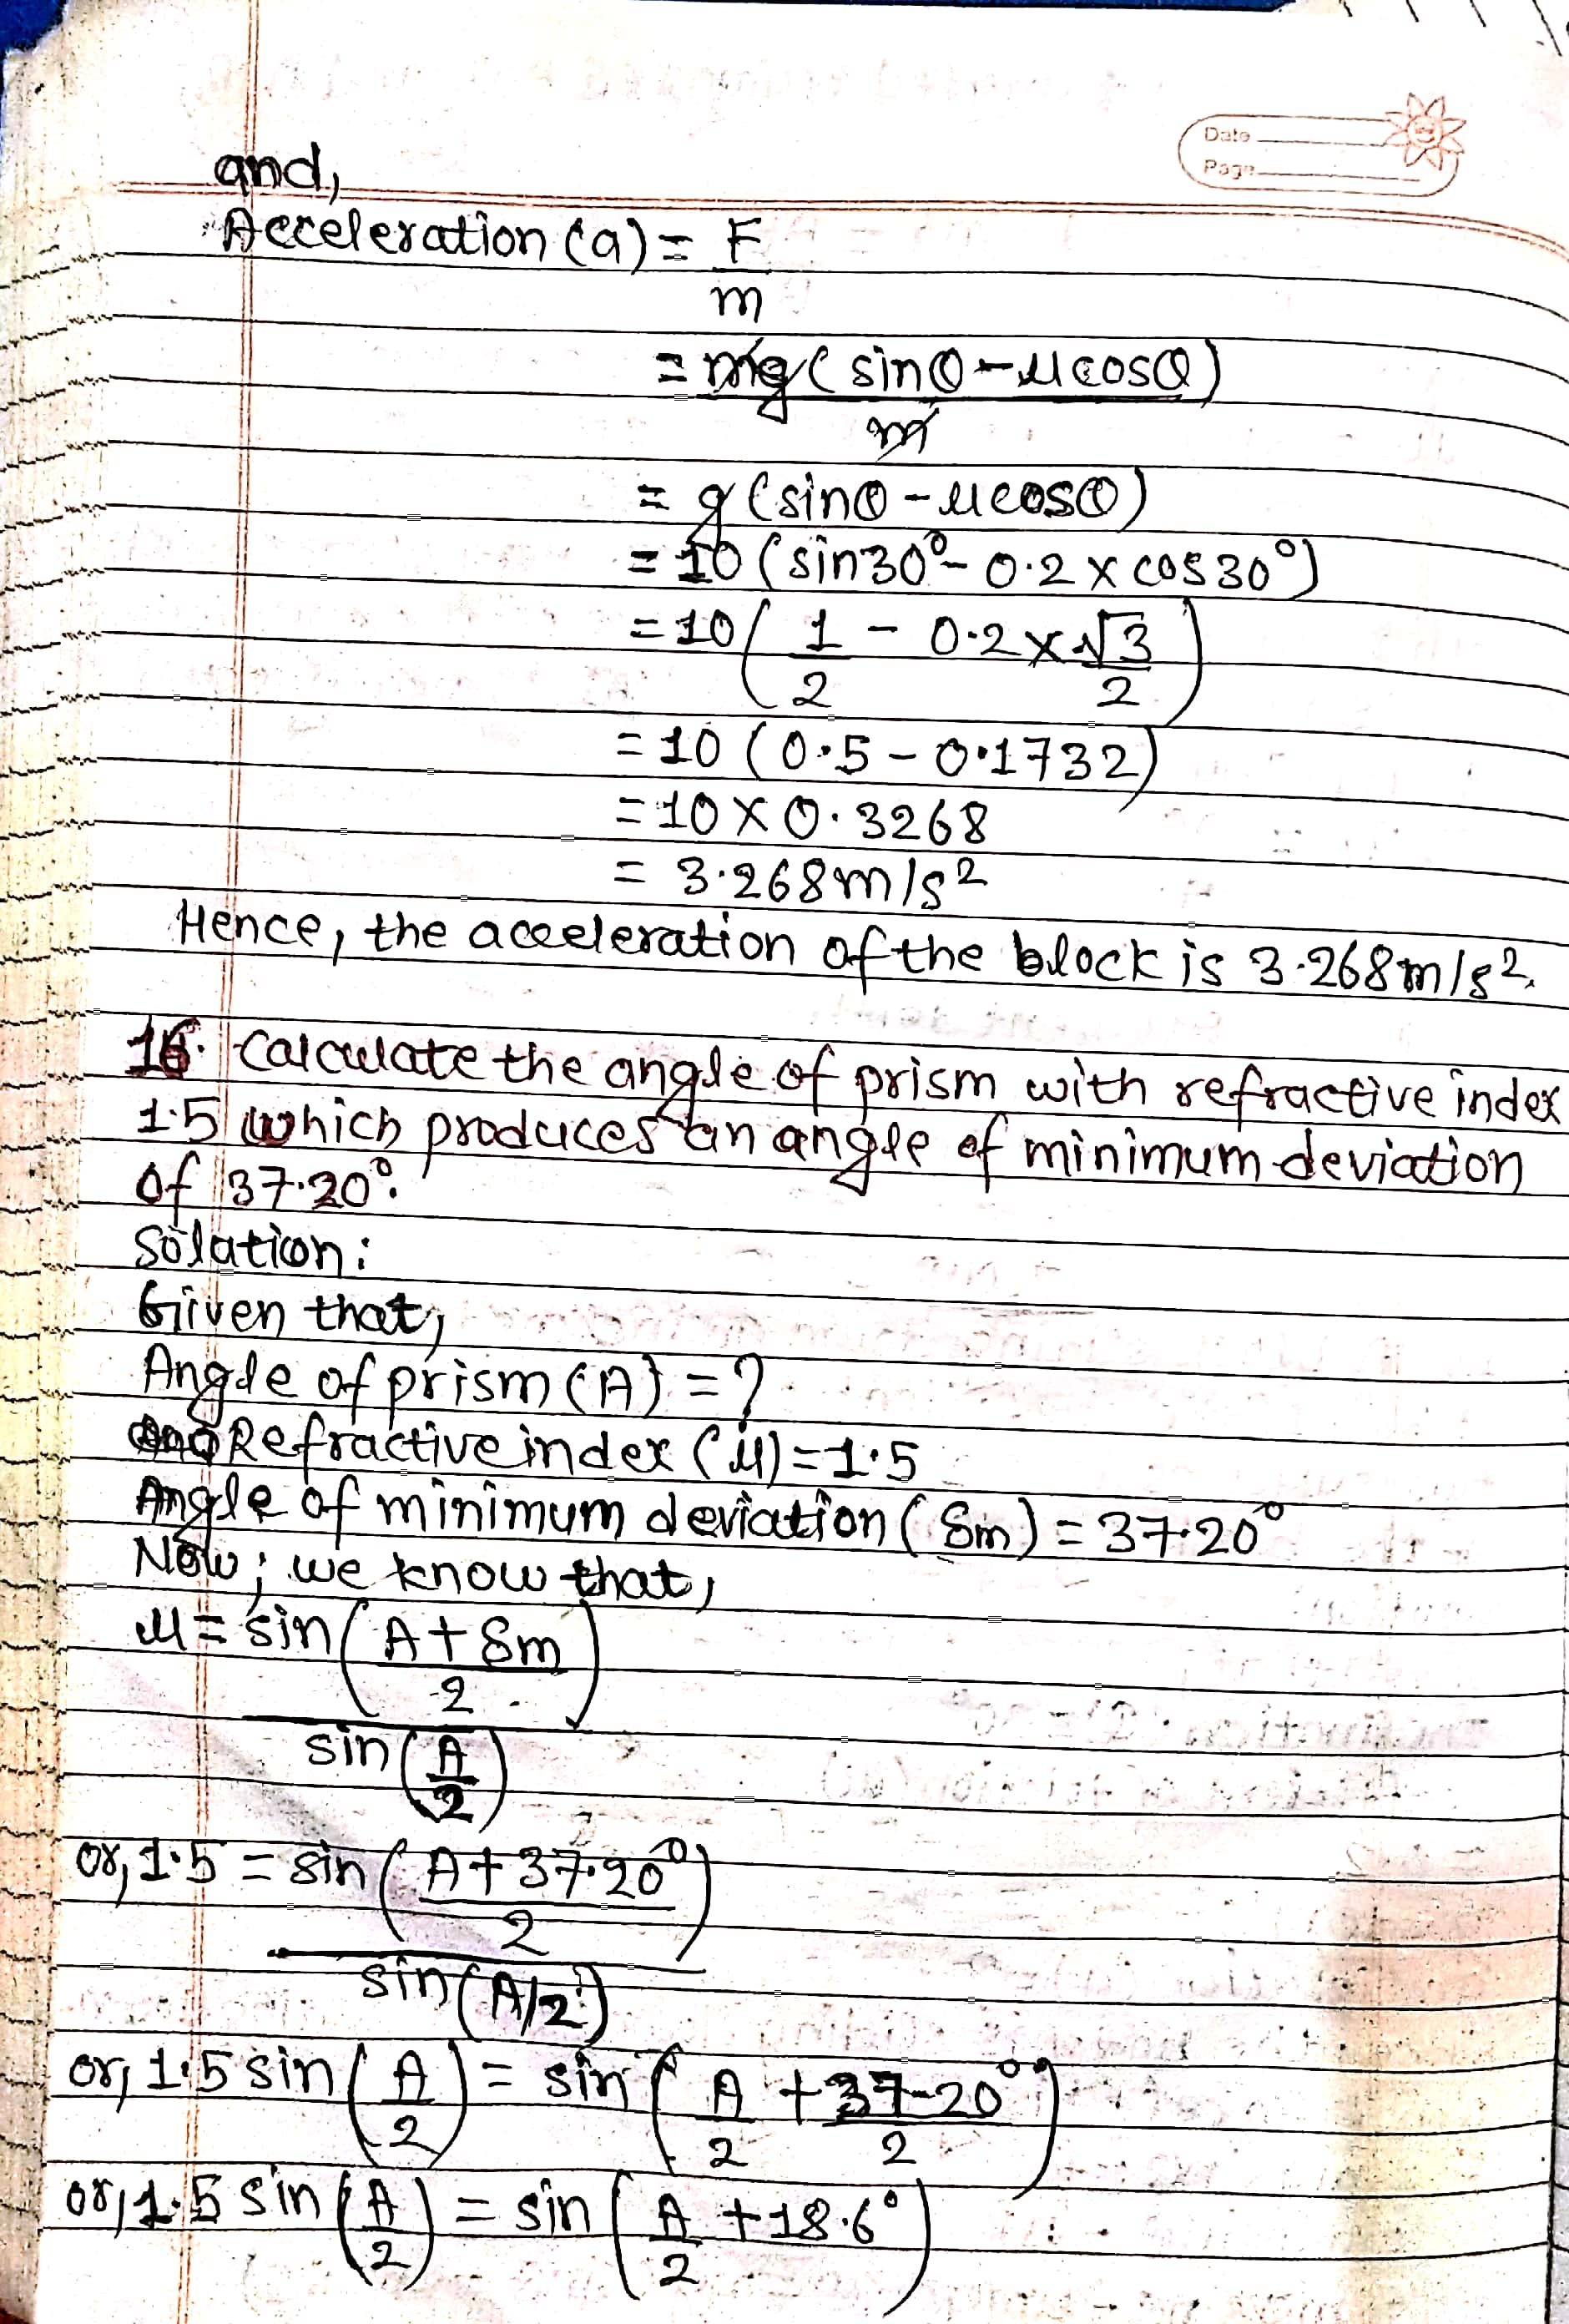 Date
Page
and,
Acceleration (a) = F
m
= mg (sinθ - μcosθ)
m
= g (sinθ - μcosθ)
= 10 (sin30° - 0.2 × cos30°)
= 10 ( 1 - 0.2 × √3 )
2 2
= 10 (0.5 - 0.1732)
= 10 × 0.3268
= 3.268m/s²
Hence, the acceleration of the block is 3.268m/s².
16. Calculate the angle of prism with refractive index
1.5 which produces an angle of minimum deviation
of 37.20°.
Solution:
Given that,
Angle of prism (A) = ?
Refractive index (μ) = 1.5
Angle of minimum deviation (δm) = 37.20°
Now; we know that,
μ = sin ( A + δm )
2
sin ( A )
2
or, 1.5 = sin ( A + 37.20° )
2
sin (A/2)
or, 1.5 sin ( A ) = sin ( A + 37.20° )
2 2 2
or, 1.5 sin ( A ) = sin ( A + 18.6° )
2 2